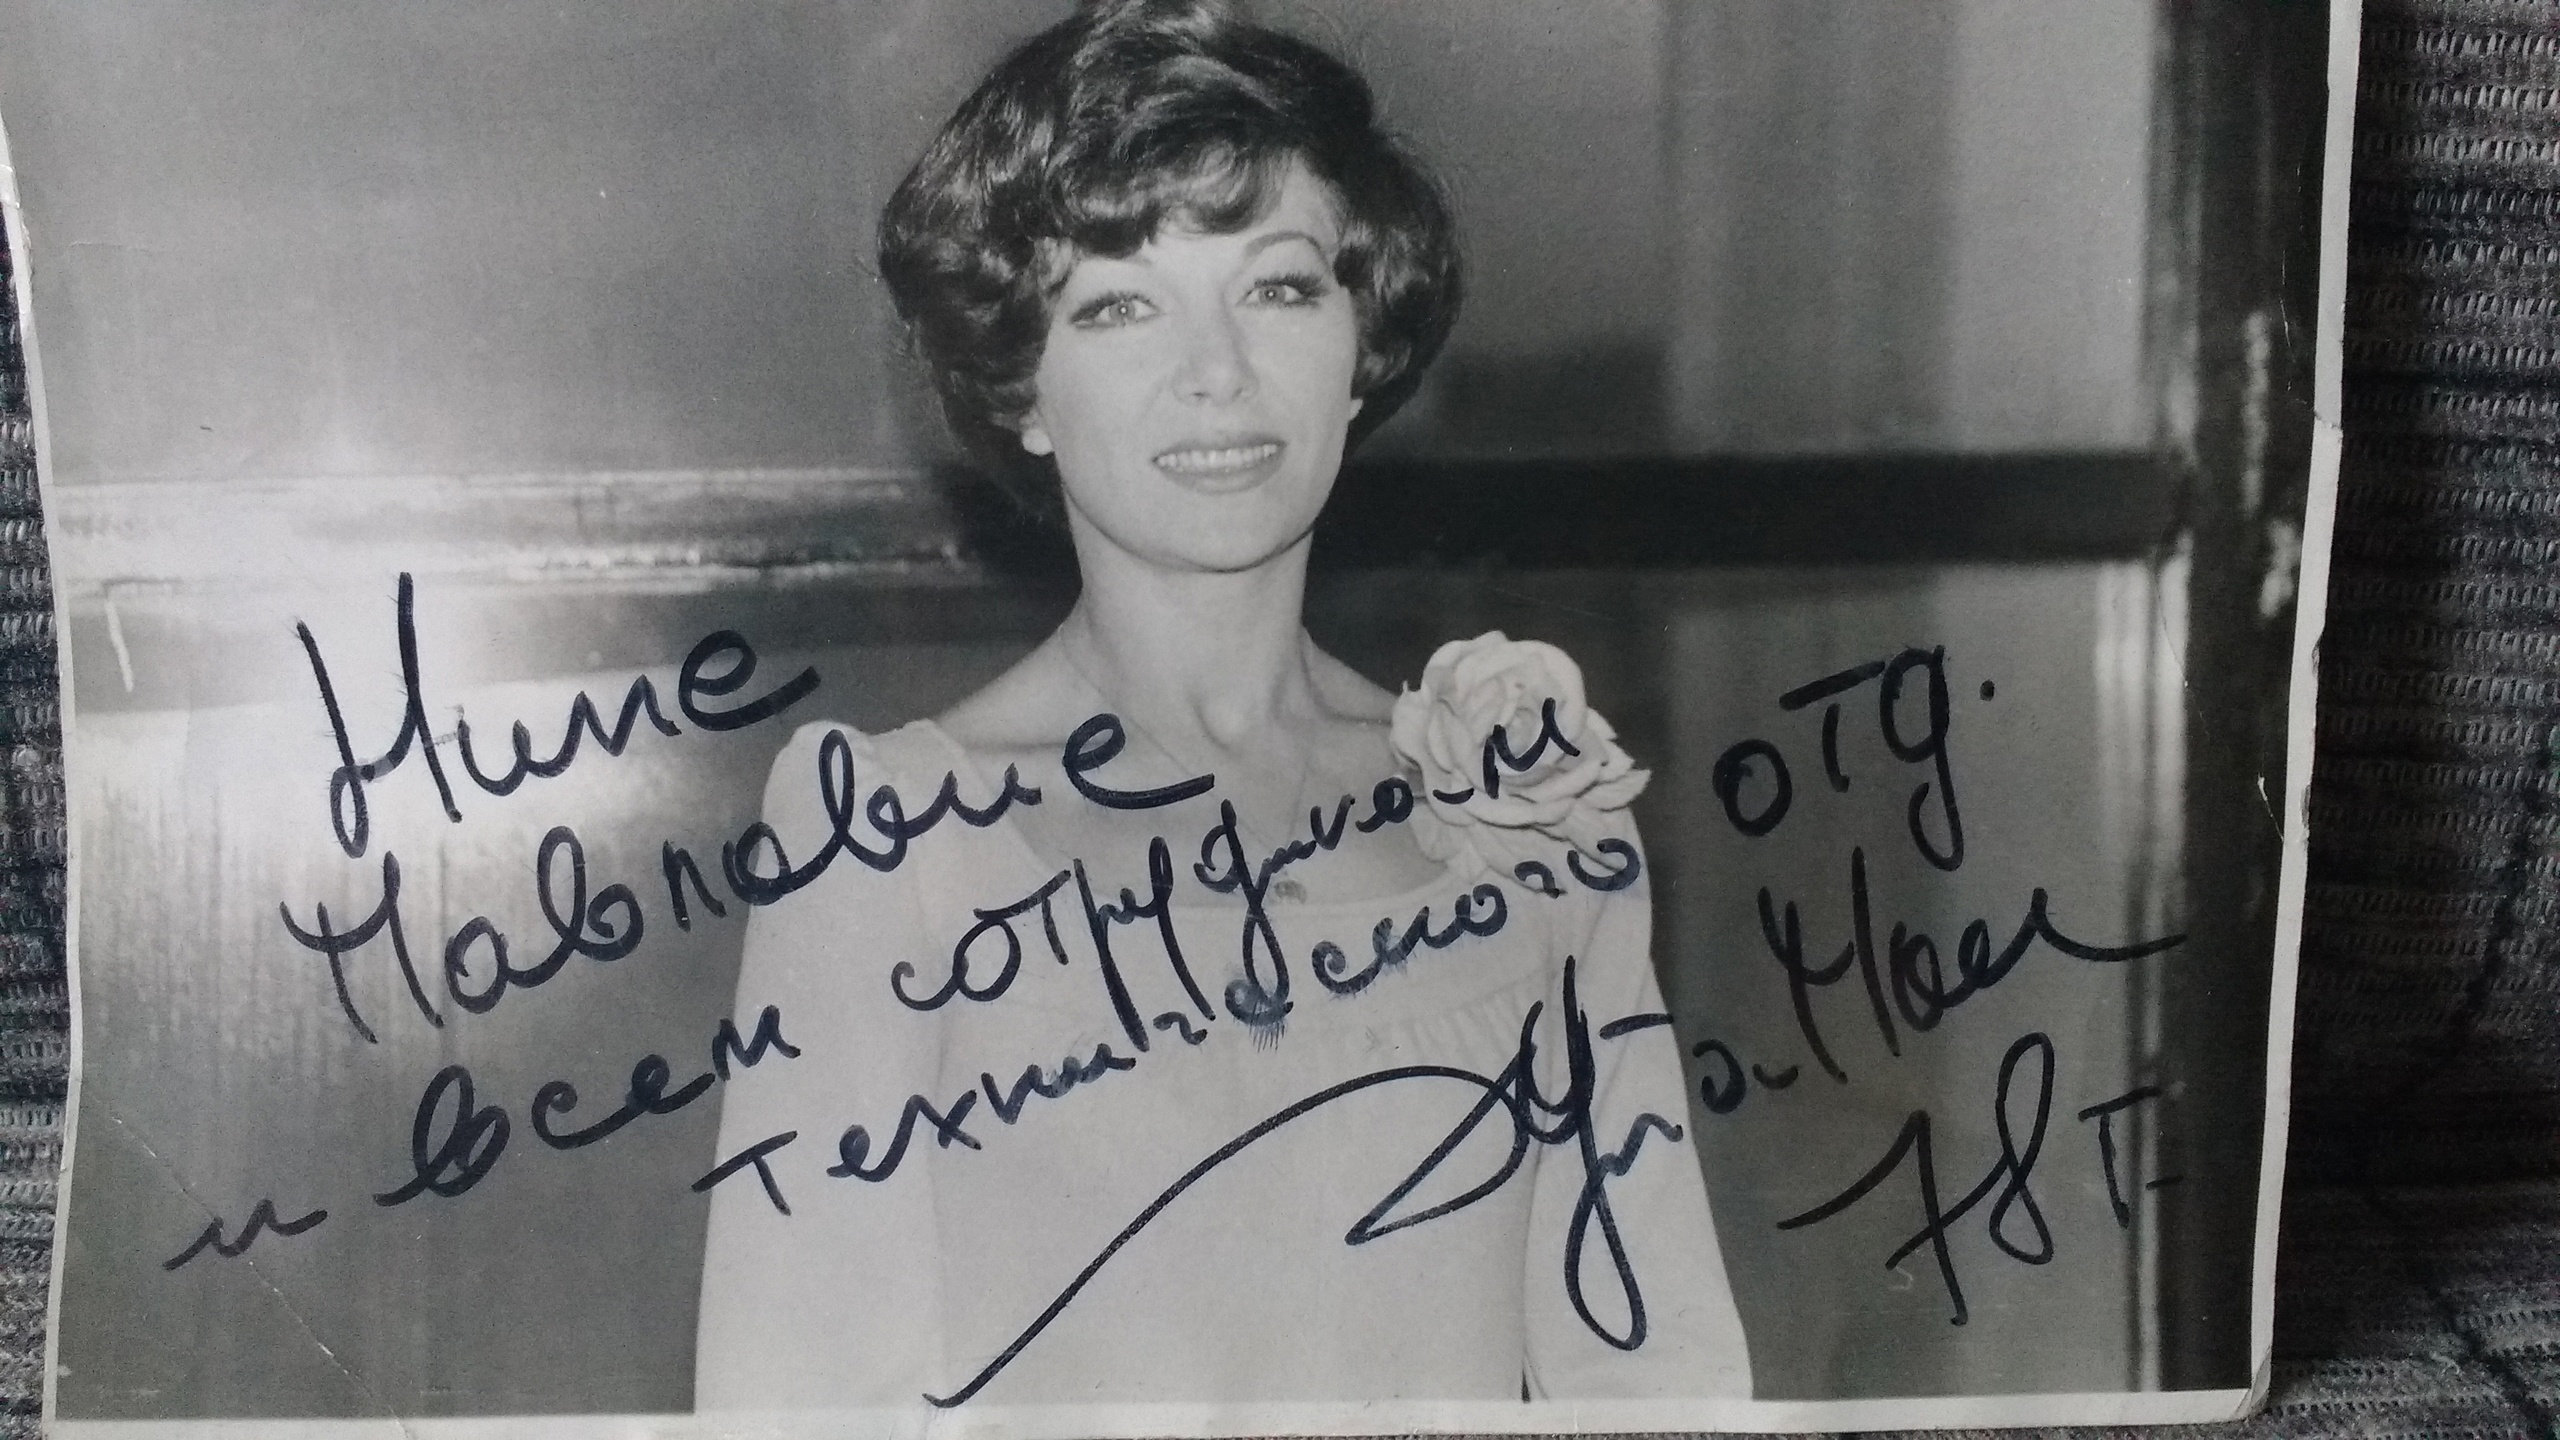 Нине
Павловне
и всем сотрудникам
технического отд.
Май
78 г.